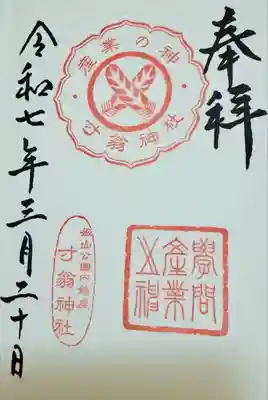 奉拝
産業の神
寸翁神社
學問
産業
姫山公園内鎮座
寸翁神社
令和七年三月二十日